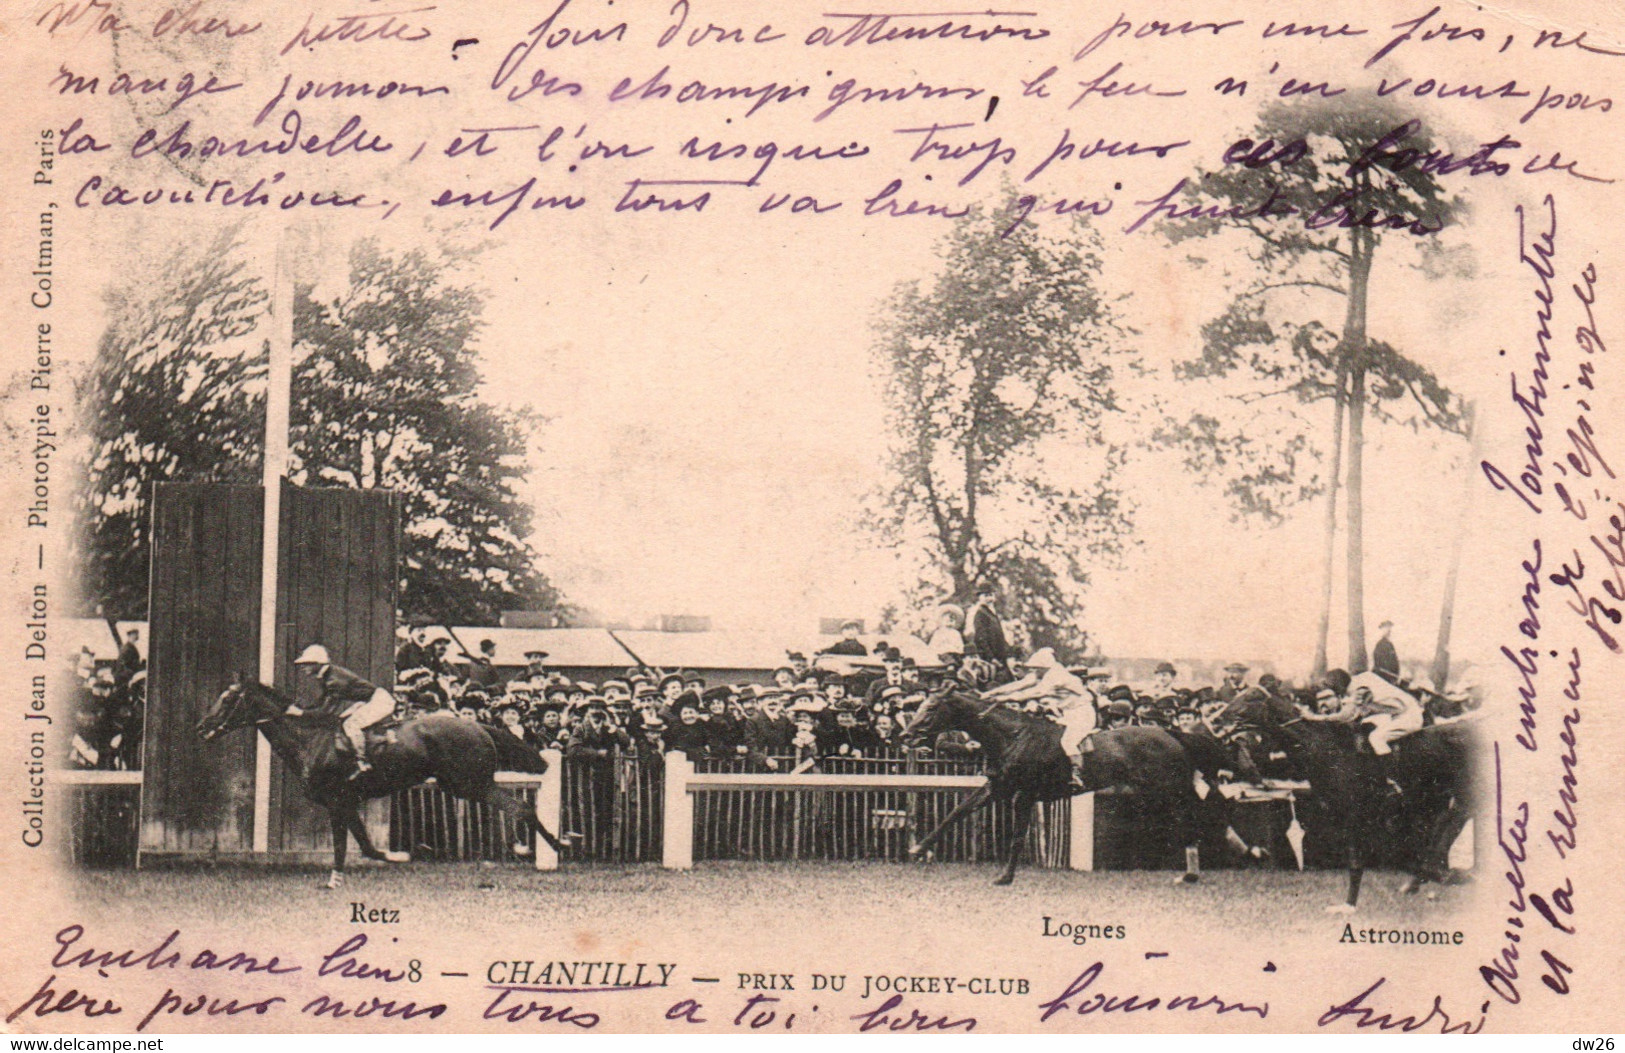 Ma chère petite - fais donc attention pour une fois, ne
mange jamais des champignons, le feu n'en vaut pas
la chandelle, et l'on risque trop pour ces bouts de
caoutchouc, enfin tout va bien qui finit bien
Collection Jean Delton — Phototypie Pierre Coltman, Paris
Retz
Lognes
Astronome
8 — CHANTILLY — PRIX DU JOCKEY-CLUB
Embrasse bien
père pour nous tous à toi bons baisers André
embrasse Tantinnette
et la remercie de l'épingle
Bébé
www.delcampe.net
dw26